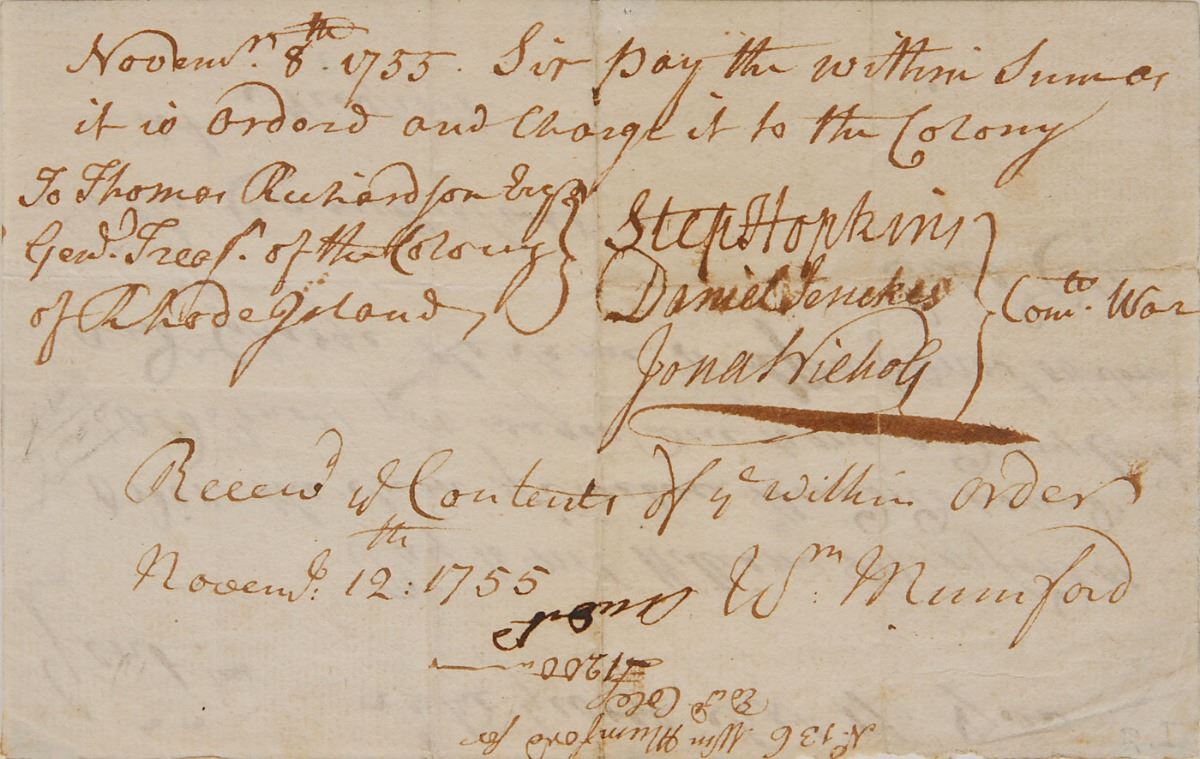 Novemr. 8th 1755. Sir pay the within Sum as
it is Orderd and Charge it to the Colony
To Thomas Richardson Esqr
Genl. Treasr. of the Colony
of Rhode Island
Step Hopkins
Daniel Jenckes
Jona Nichols
Comtt. War
Receivd ye Contents of ye within order
Novemr. 12th: 1755
Wm. Mumford
No. 136 Wm Mumford for
Cole
1200